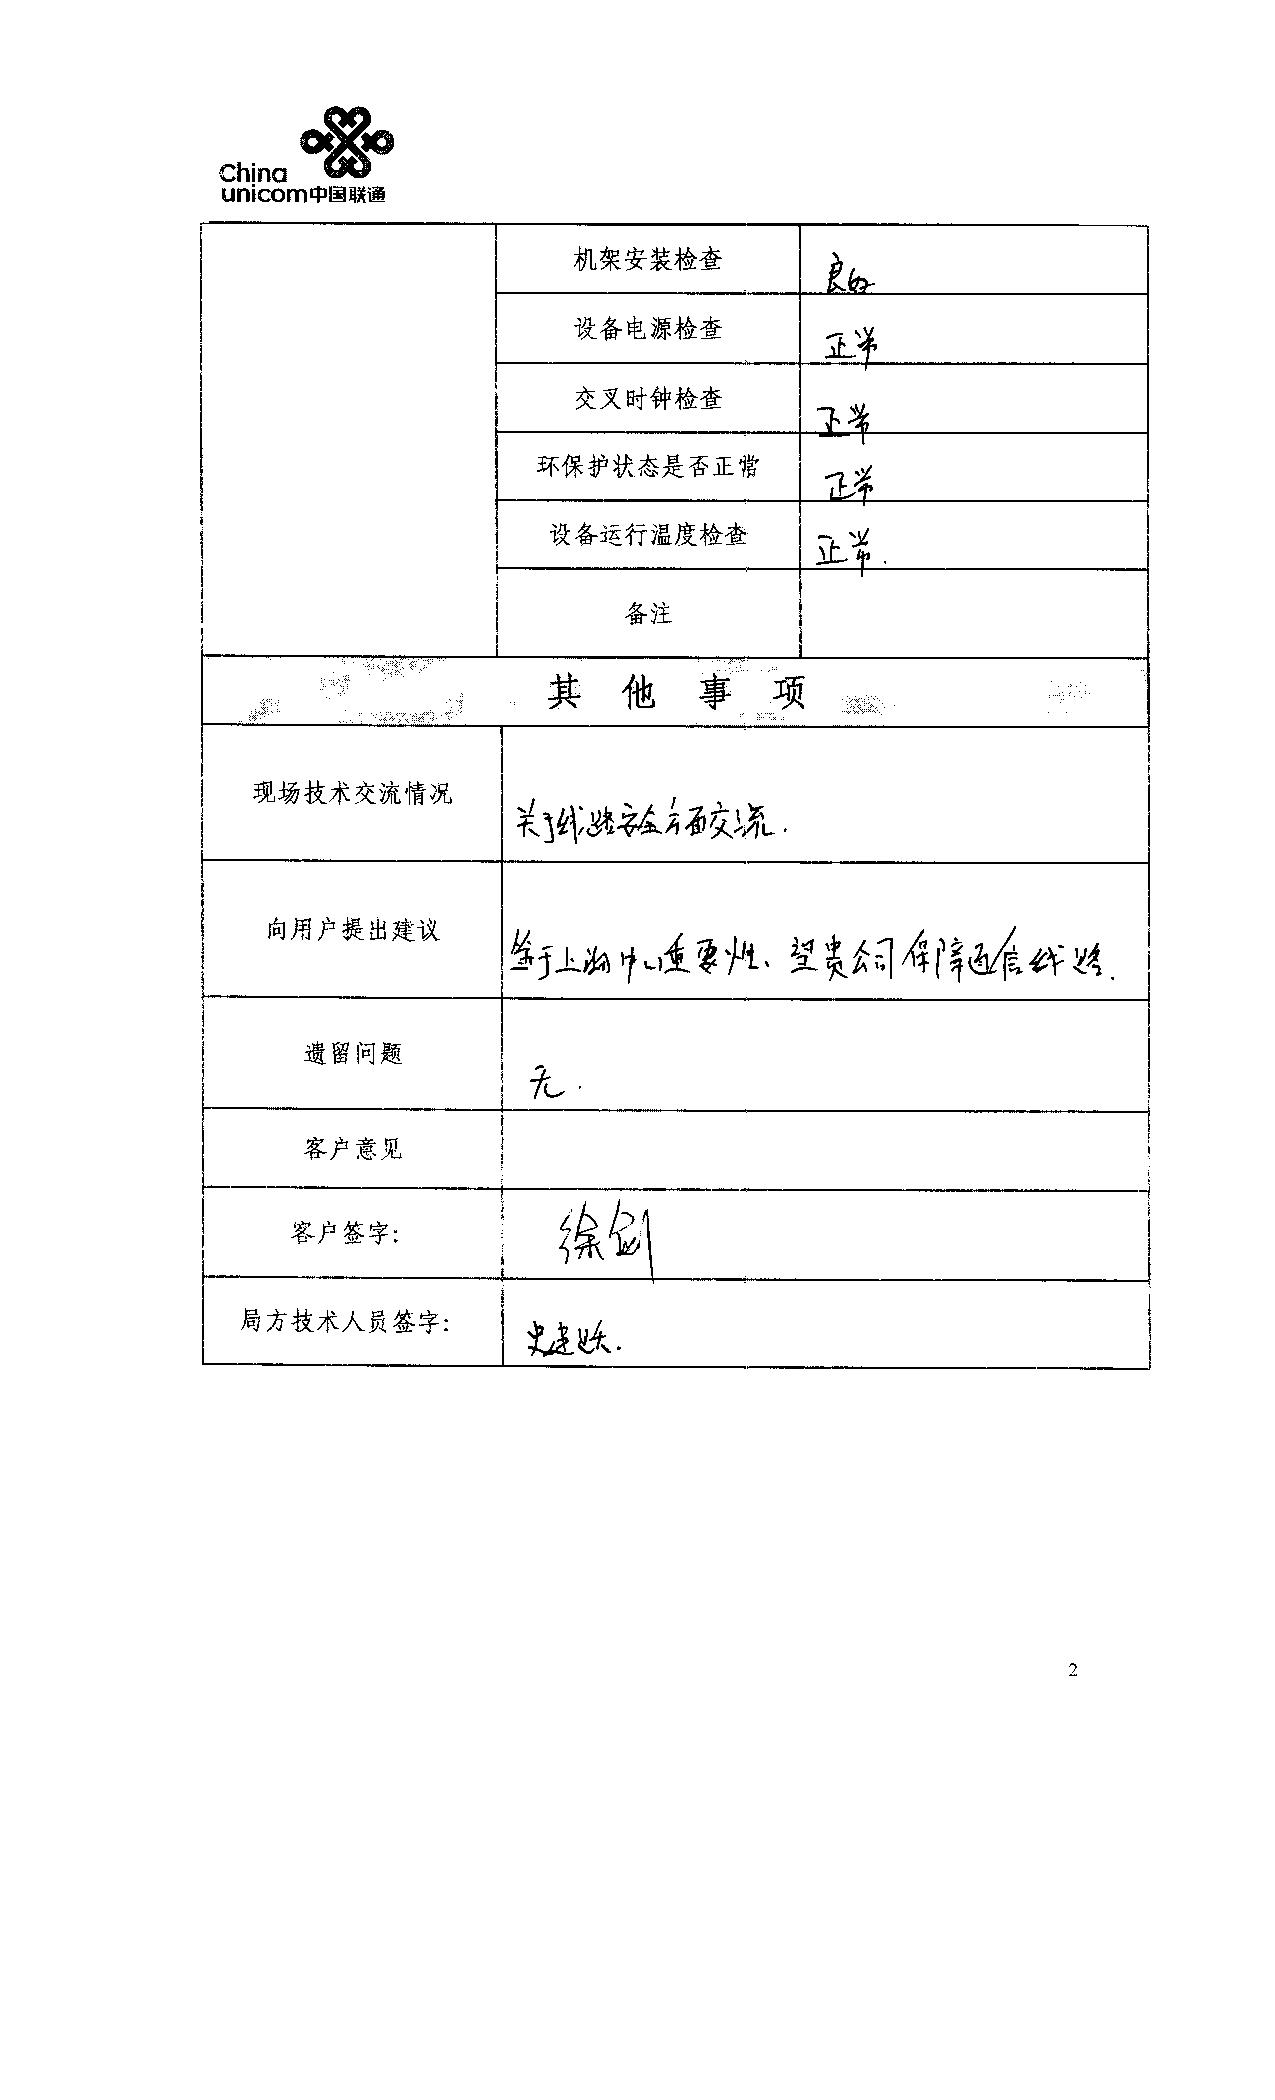 China
unicom中国联通
机架安装检查 良好
设备电源检查 正常
交叉时钟检查 正常
环保护状态是否正常 正常
设备运行温度检查 正常.
备注
其他事项
现场技术交流情况 关于线路安全方面交流.
向用户提出建议 鉴于上海中心重要性、望贵公司保障通信线路.
遗留问题 无.
客户意见
客户签字: 徐剑
局方技术人员签字: 史建跃.
2